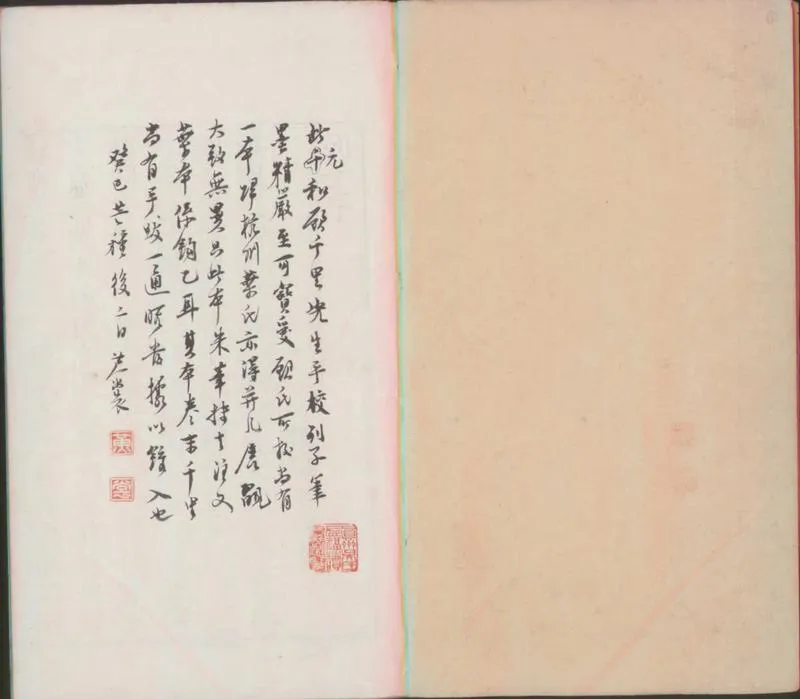 此元和顧千里先生手校列子筆
墨精嚴至可寶愛顧氏所校尚有
一本歸杭州葉氏亦得并几展觀
大致無異只此本朱筆者注文
葉本係鉤乙耳其本卷末千里
尚有手跋一通暇當據以錄入也
癸巳芒種後二日黃裳
黃
裳